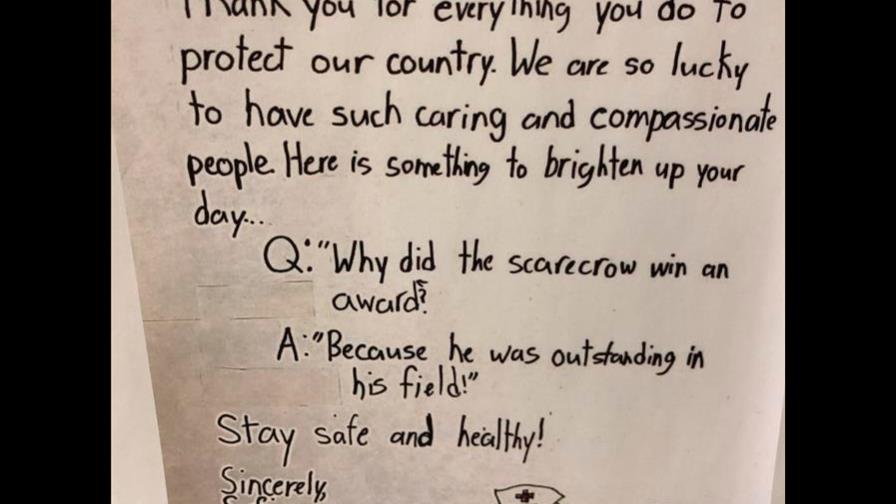 Thank you for everything you do to
protect our country. We are so lucky
to have such caring and compassionate
people. Here is something to brighten up your
day...
Q: "Why did the scarecrow win an
award?
A: "Because he was outstanding in
his field!"
Stay safe and healthy!
Sincerely,